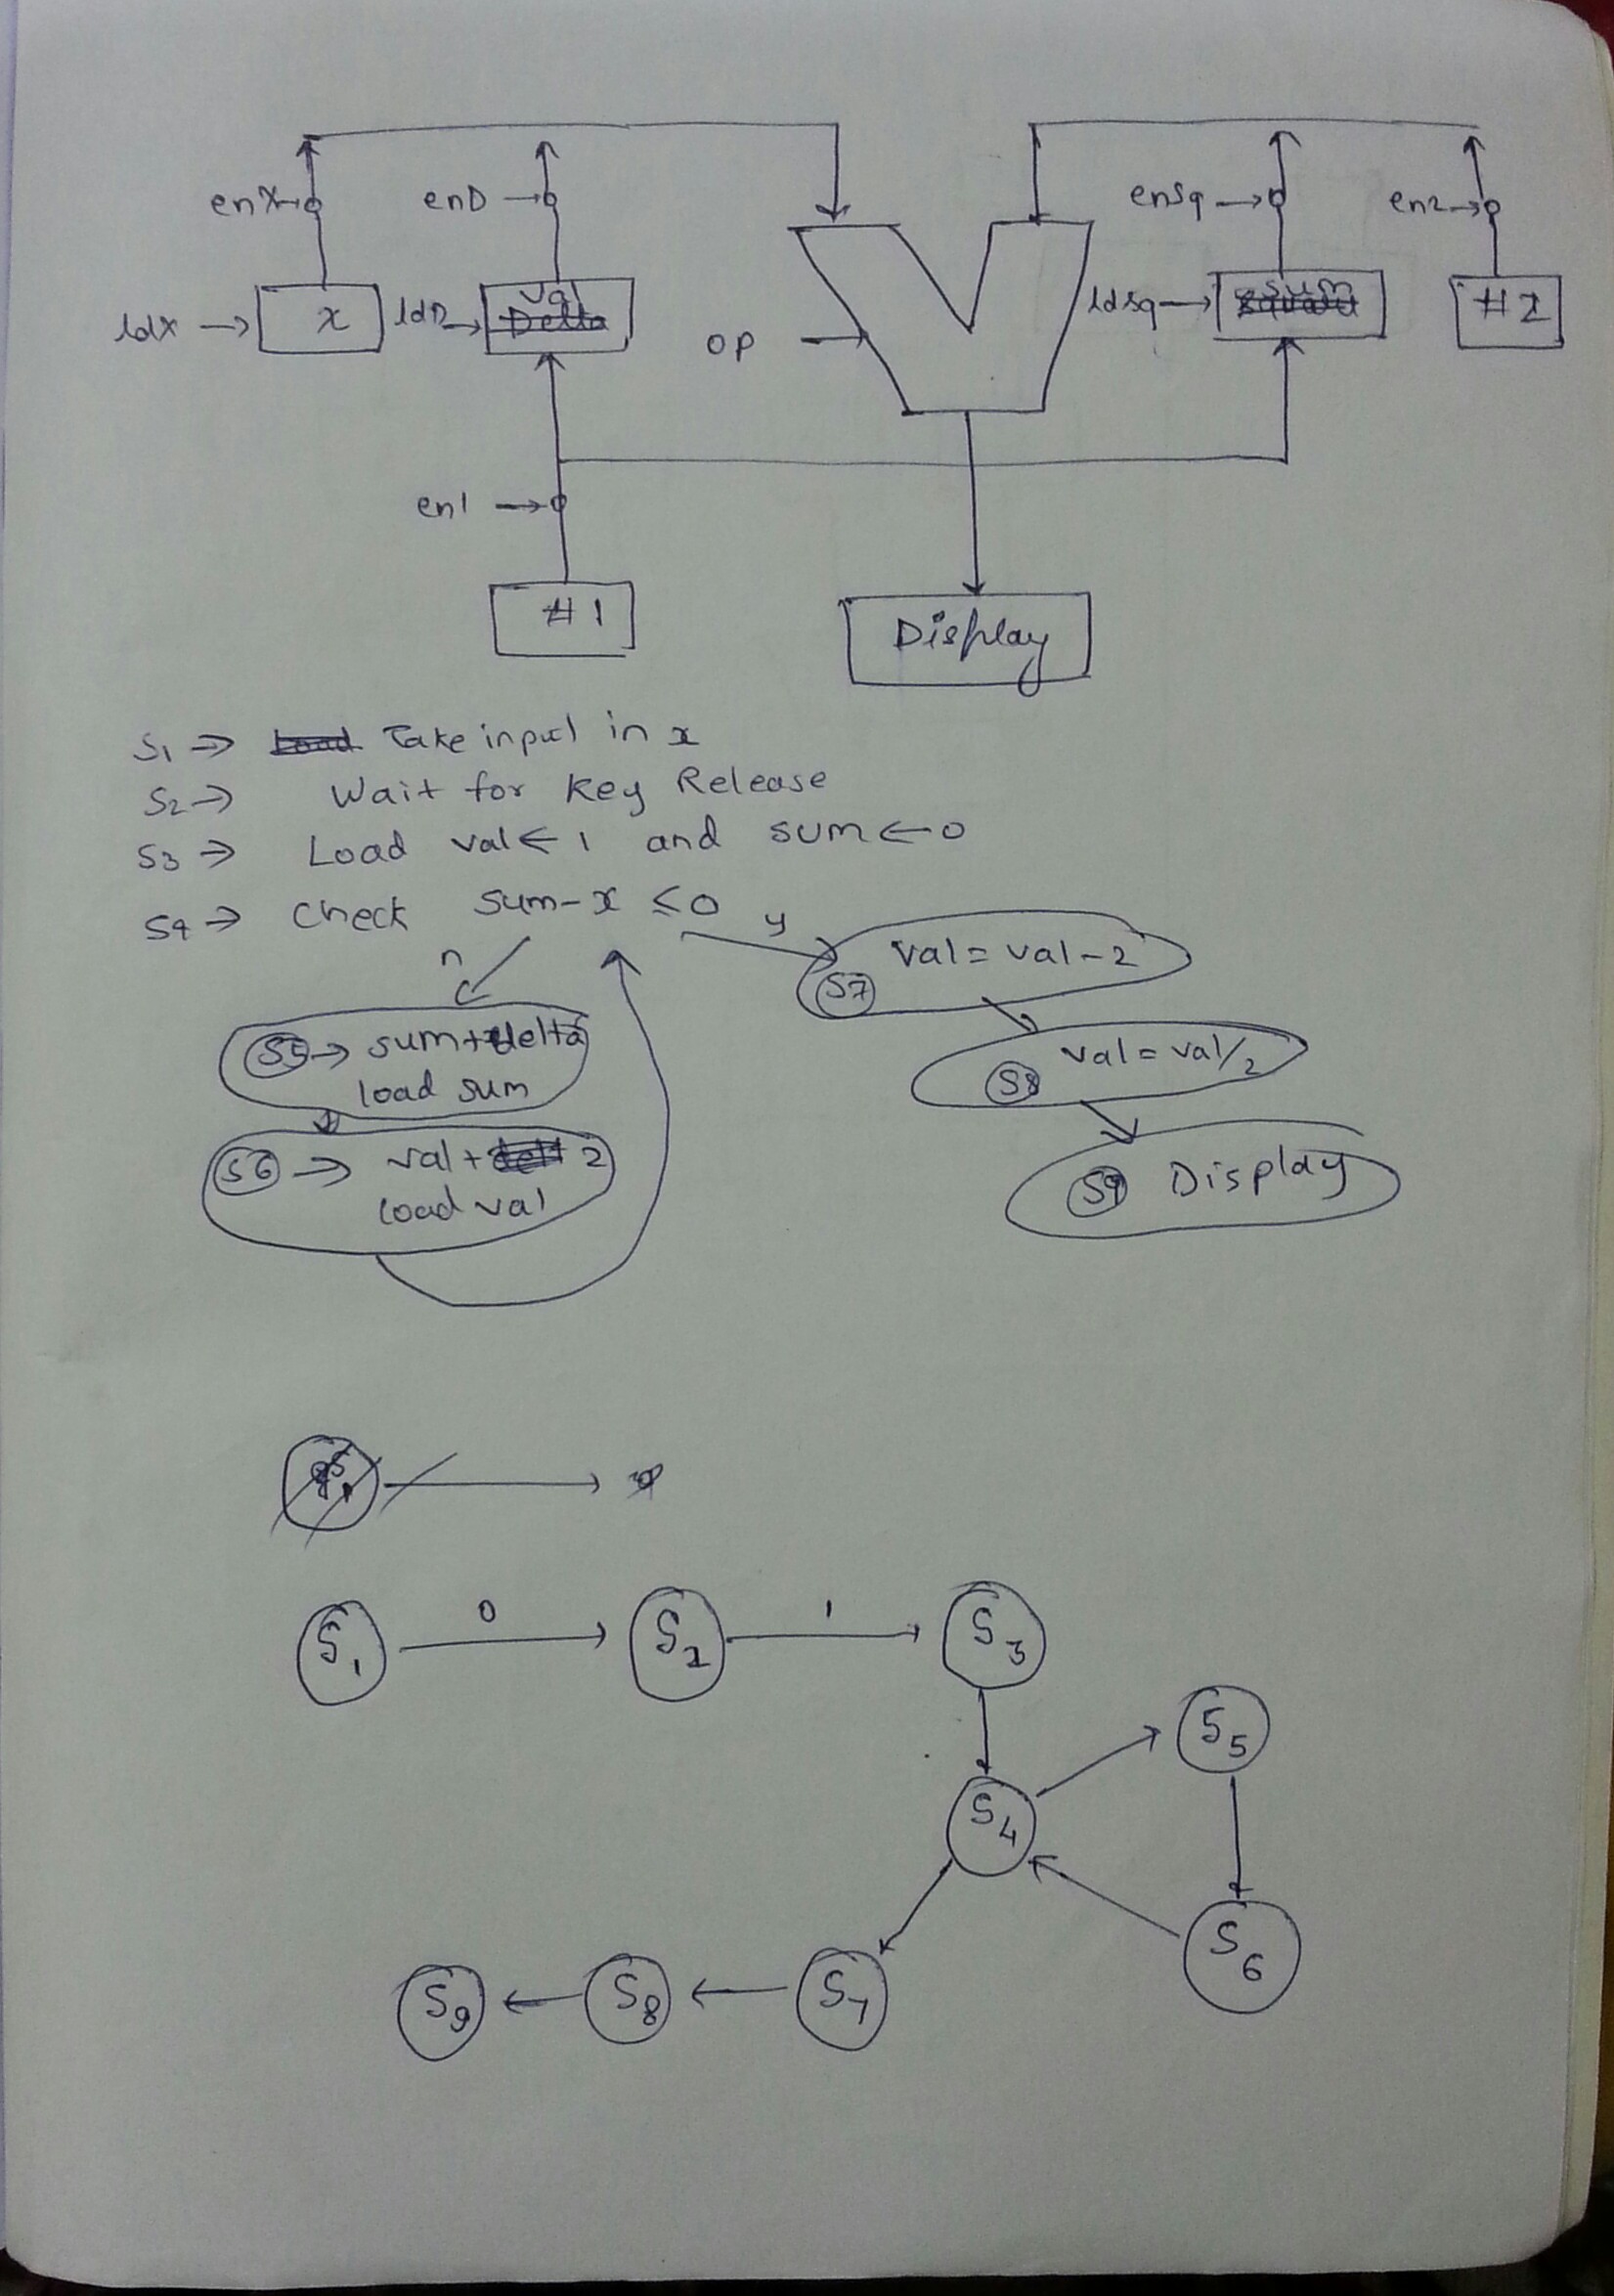 enX enD ensq en2
ldX x ldD val Delta op ldsq sum square #2
en1
#1 Display
S1 → Load Take input in x
S2 → Wait for Key Release
S3 → Load val ← 1 and sum ← 0
S4 → Check sum-x ≤ 0 y
n
S7 val = val - 2
S5 → sum + delta
load sum
S8 val = val/2
S6 → val + delt 2
load val
S9 Display
S1 0 S2 1 S3
S5
S4
S6
S9 S8 S7